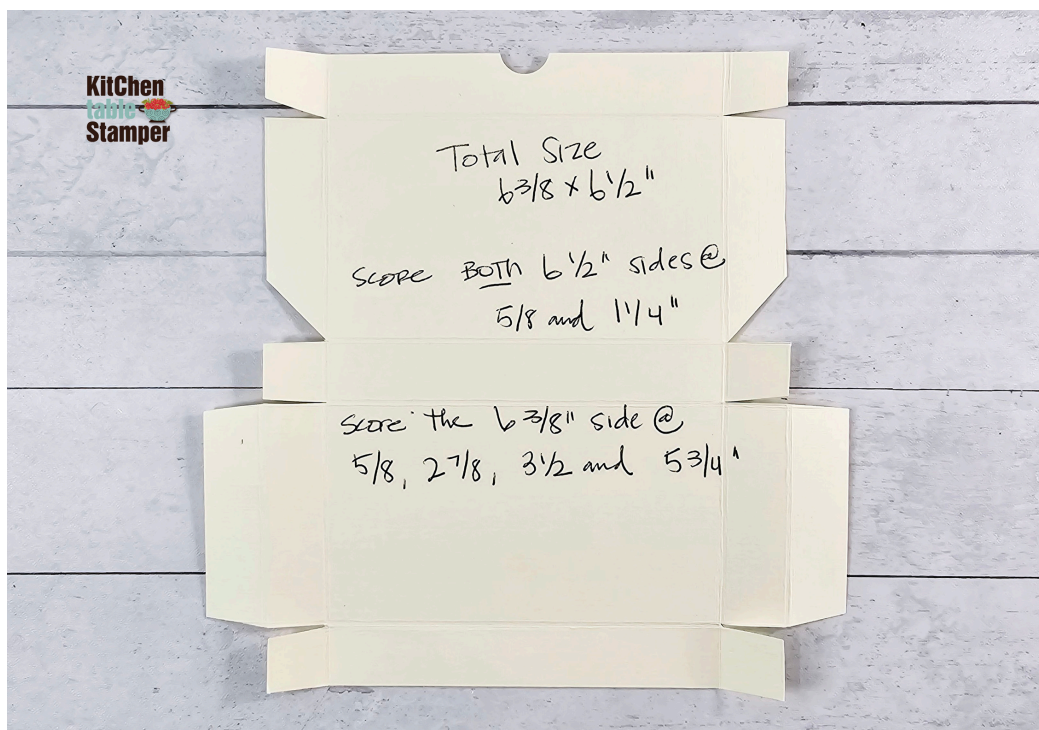 KitChen
table
Stamper
Total Size
6 3/8 x 6 1/2"
Score BOTH 6 1/2" sides @
5/8 and 1 1/4"
Score the 6 3/8" side @
5/8, 2 7/8, 3 1/2 and 5 3/4"